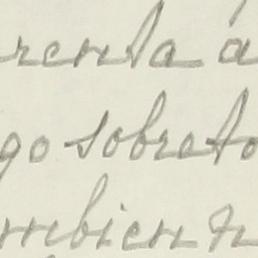 renta á
go sobreto
mbien n